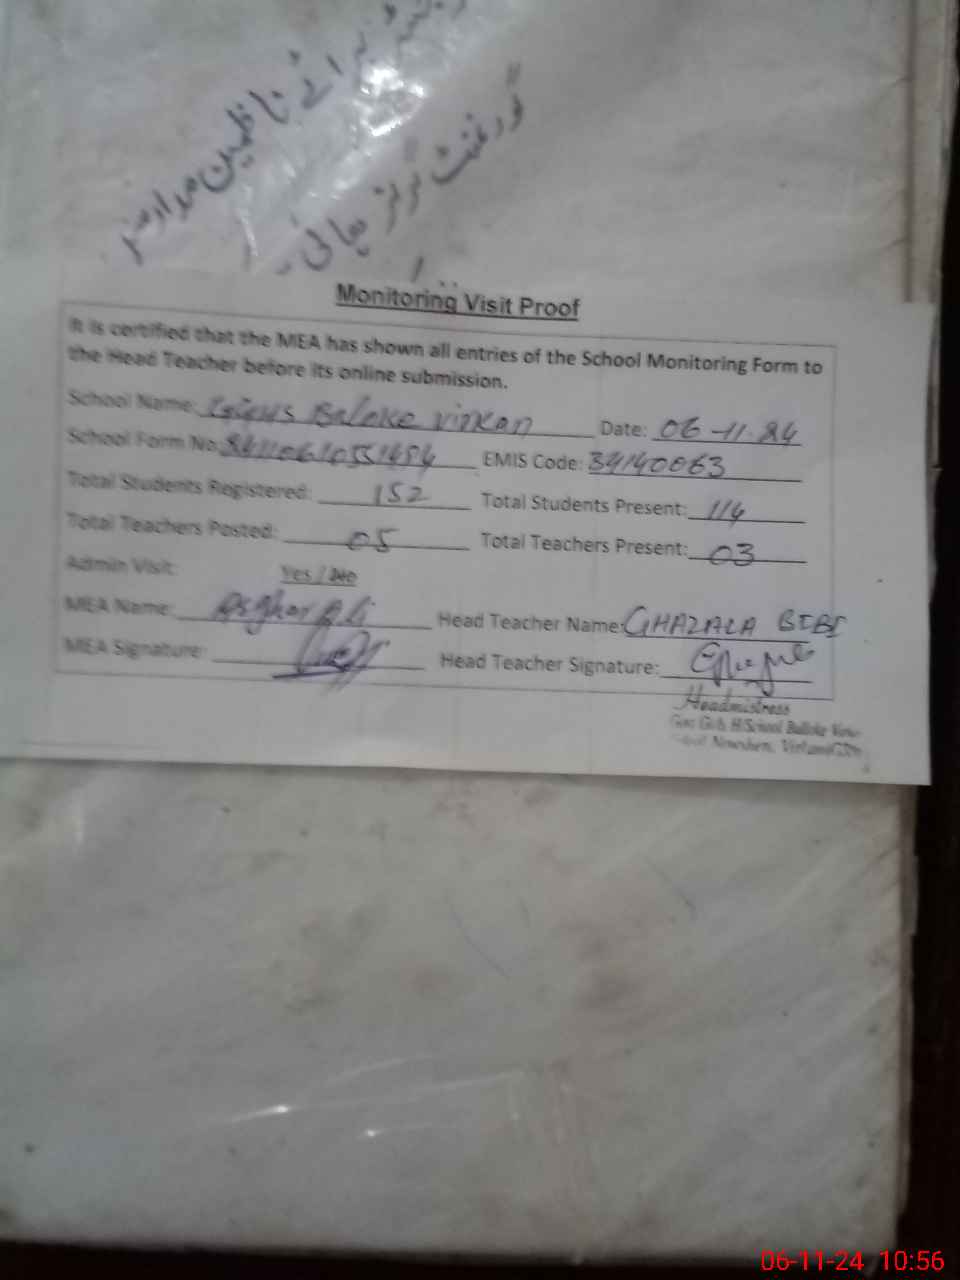 برائے ناظمین مدارس
گورنمنٹ گرلز ہائی
Monitoring Visit Proof
It is certified that the MEA has shown all entries of the School Monitoring Form to
the Head Teacher before its online submission.
School Name: Baloke Virkan Date: 06-11-24
School Form No: EMIS Code: 34140063
Total Students Registered: 152 Total Students Present: 114
Total Teachers Posted: 05 Total Teachers Present: 03
Admin Visit: Yes / No
MEA Name: Asghar Ali Head Teacher Name: GHAZALA BIBI
MEA Signature: Head Teacher Signature:
Headmistress
Govt. Girls H/School Balloke Virkan
Virkan
06-11-24 10:56